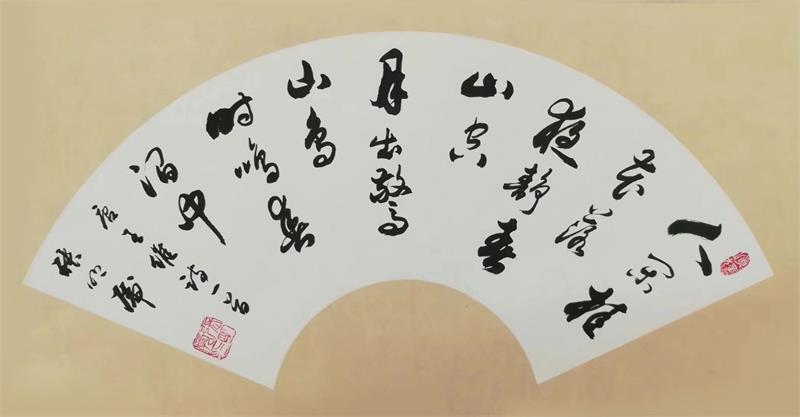 人闲桂
花落
夜静春
山空
月出驚
山鸟
时鸣春
涧中
唐王维诗一首